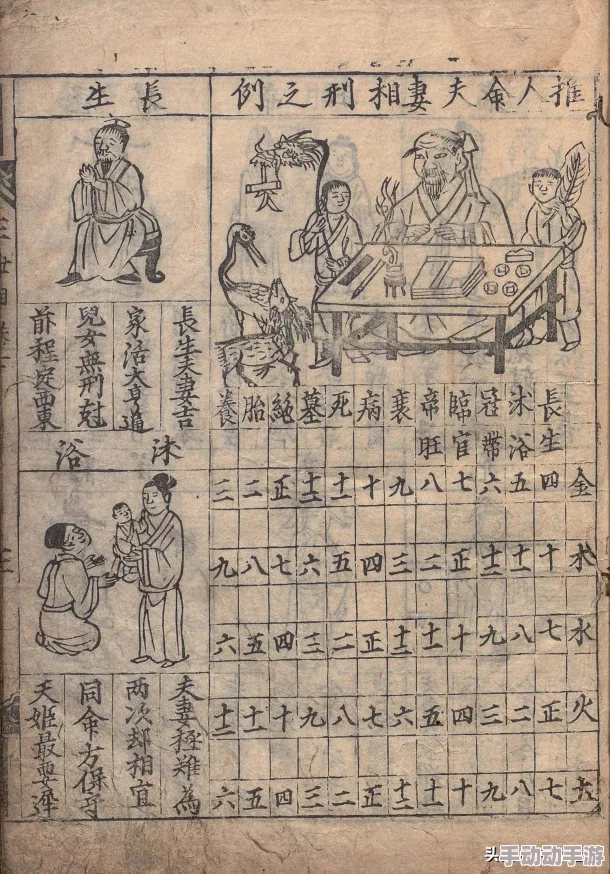 推人命夫妻相刑之例
長生 沐浴 冠帶 臨官 帝旺 衰 病 死 墓 絕 胎 養
金 四 五 六 七 八 九 十 十一 十二 正 二 三
木 十 十一 十二 正 二 三 四 五 六 七 八 九
水 七 八 九 十 十一 十二 正 二 三 四 五 六
火 正 二 三 四 五 六 七 八 九 十 十一 十二
土 七 八 九 十 十一 十二 正 二 三 四 五 六
長生
長生夫妻吉
家活大亨通
兒女無刑尅
前程定西東
沐浴
夫妻極難為
两次却相宜
同命方保守
天姬最要遲
三世相
三
头
手动动手游